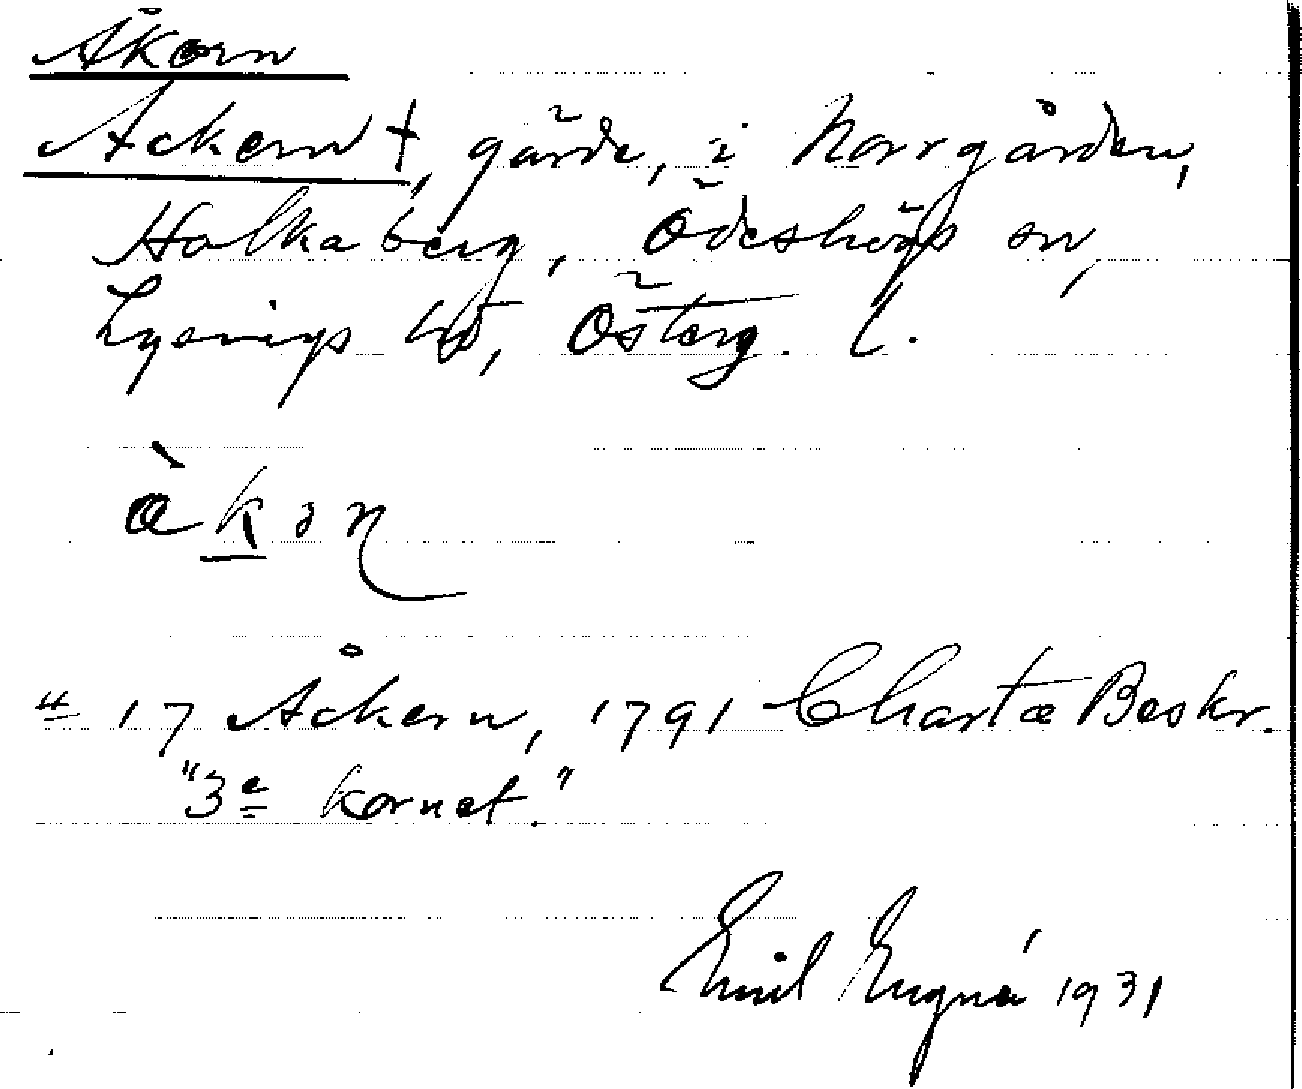 Åkorn
Ackern †, gärde, i Norrgården,
Holkaberg, Ödeshögs sn,
Lysings hd, Österg. l.
àkon
" 17 Åckern, 1791 Charta Beskr.
"3e kornet."
Emil 1931